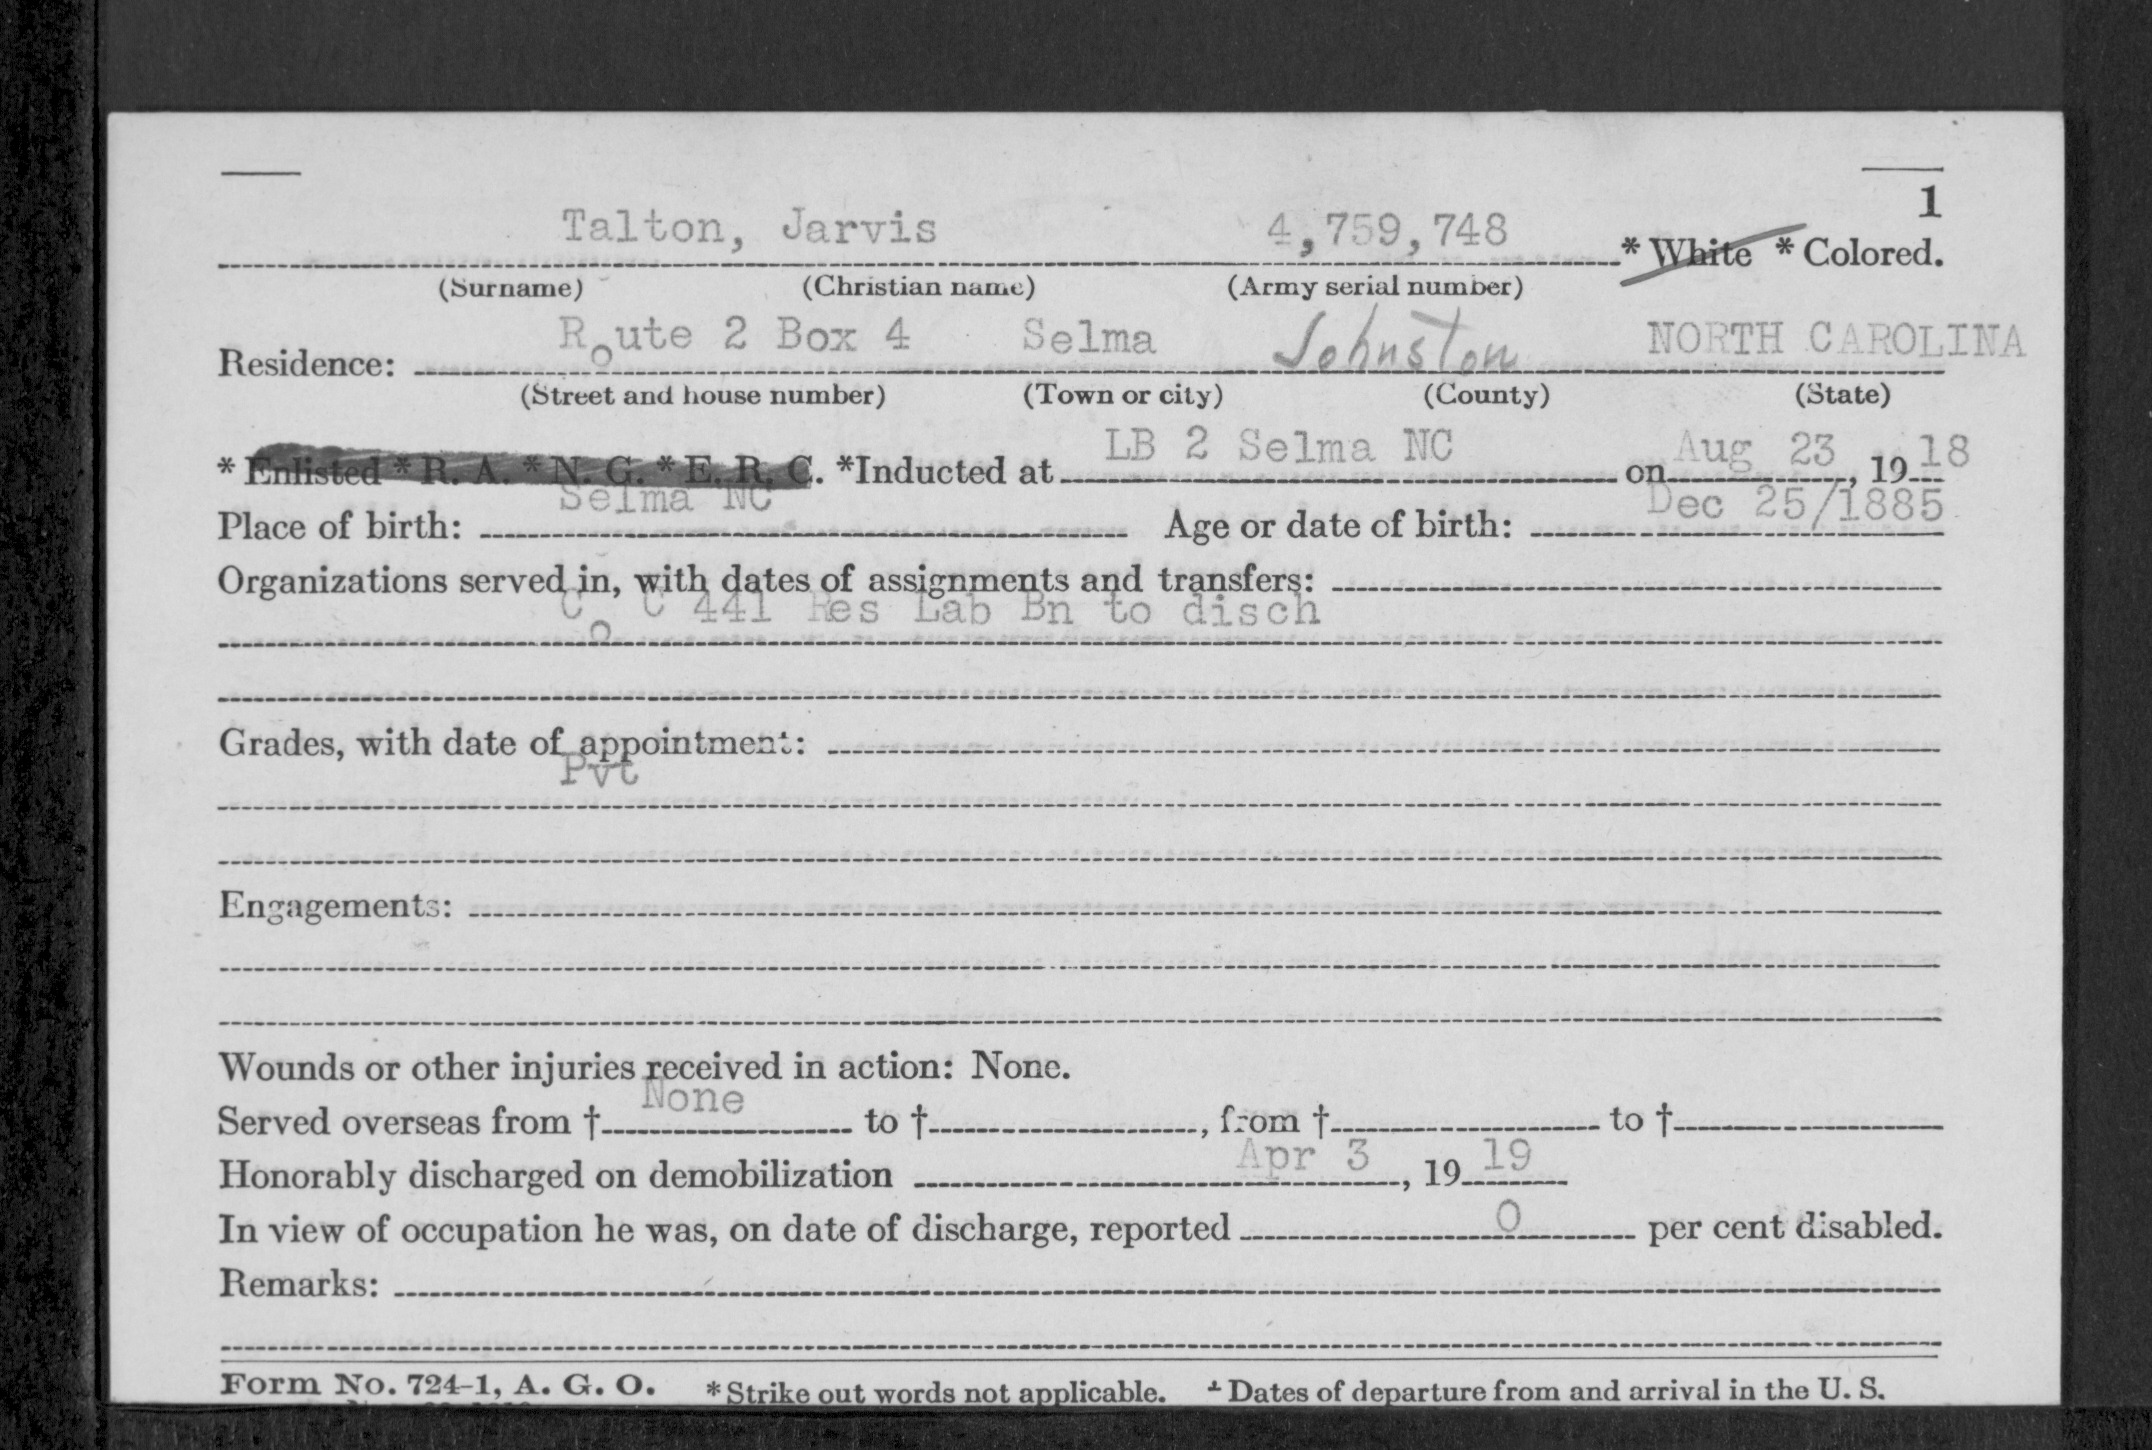 1
Talton, Jarvis 4,759,748 * White * Colored.
(Surname) (Christian name) (Army serial number)
Residence: Route 2 Box 4 Selma Johnston NORTH CAROLINA
(Street and house number) (Town or city) (County) (State)
* Enlisted * R. A. * N. G. * E. R. C. *Inducted at LB 2 Selma NC on Aug 23, 1918
Place of birth: Selma NC Age or date of birth: Dec 25/1885
Organizations served in, with dates of assignments and transfers:
Co C 441 Res Lab Bn to disch
Grades, with date of appointment:
Pvt
Engagements:
Wounds or other injuries received in action: None.
Served overseas from † None to †, from † to †
Honorably discharged on demobilization Apr 3, 19 19
In view of occupation he was, on date of discharge, reported 0 per cent disabled.
Remarks:
Form No. 724-1, A. G. O. *Strike out words not applicable. † Dates of departure from and arrival in the U. S.